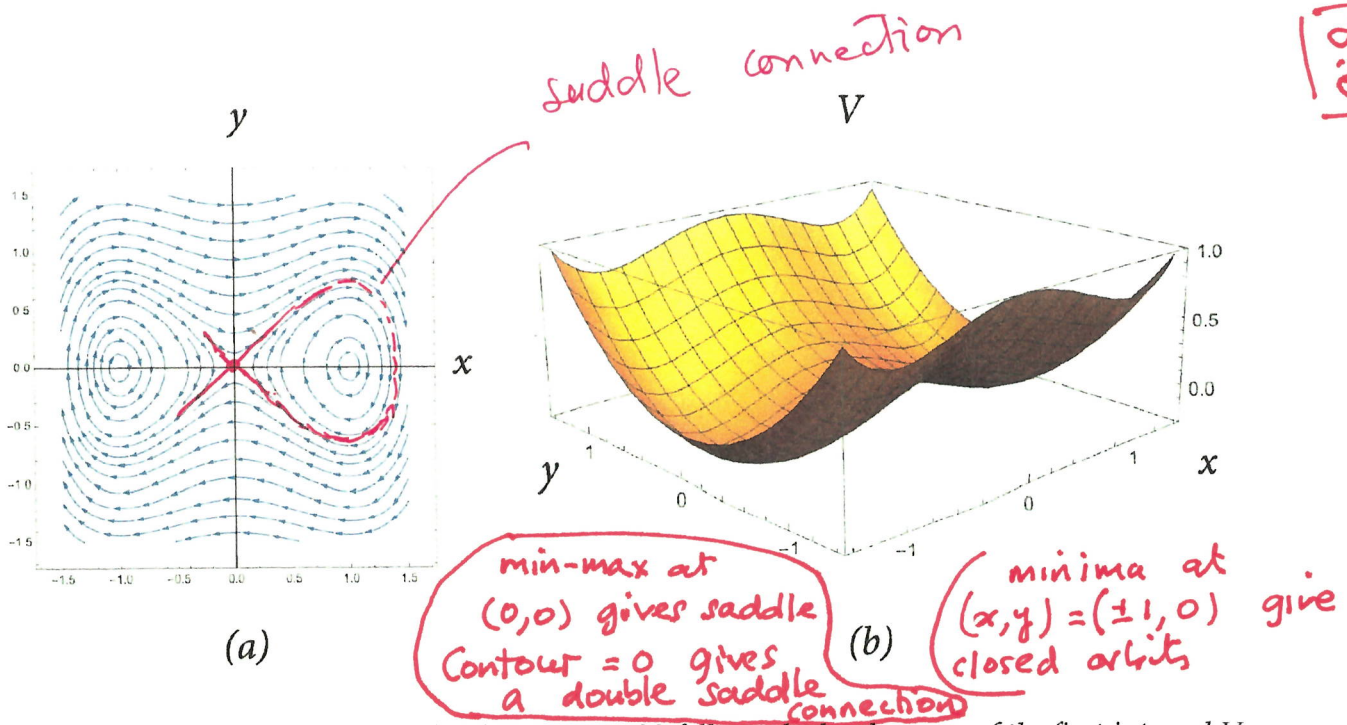 saddle connection
y
V
1.5
1.0
0.5
0.0
-0.5
-1.0
-1.5
-1.5 -1.0 -0.5 0.0 0.5 1.0 1.5
x
(a)
1.0
0.5
0.0
y
1
0
-1
-1
0
1
x
(b)
min-max at
(0,0) gives saddle
Contour = 0 gives
a double saddle
connection
minima at
(x,y) = (±1,0) give
closed orbits
of the first integral V